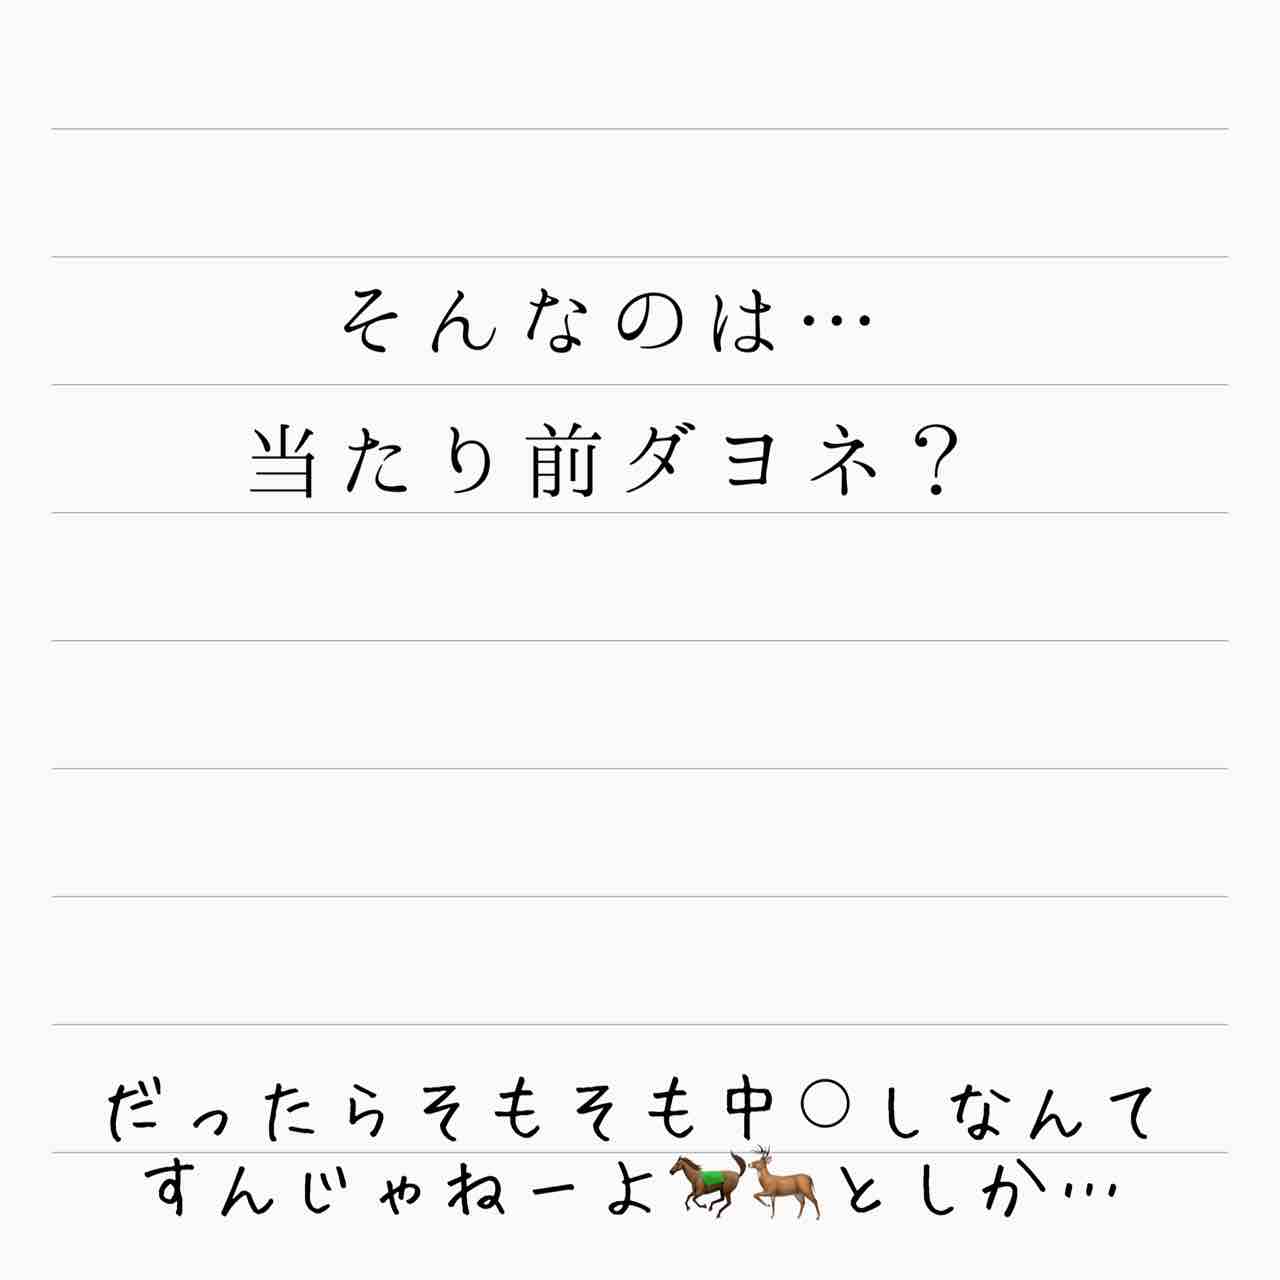 そんなのは…
当たり前ダヨネ？
だったらそもそも中○しなんて
すんじゃねーよ🐎🦌としか…